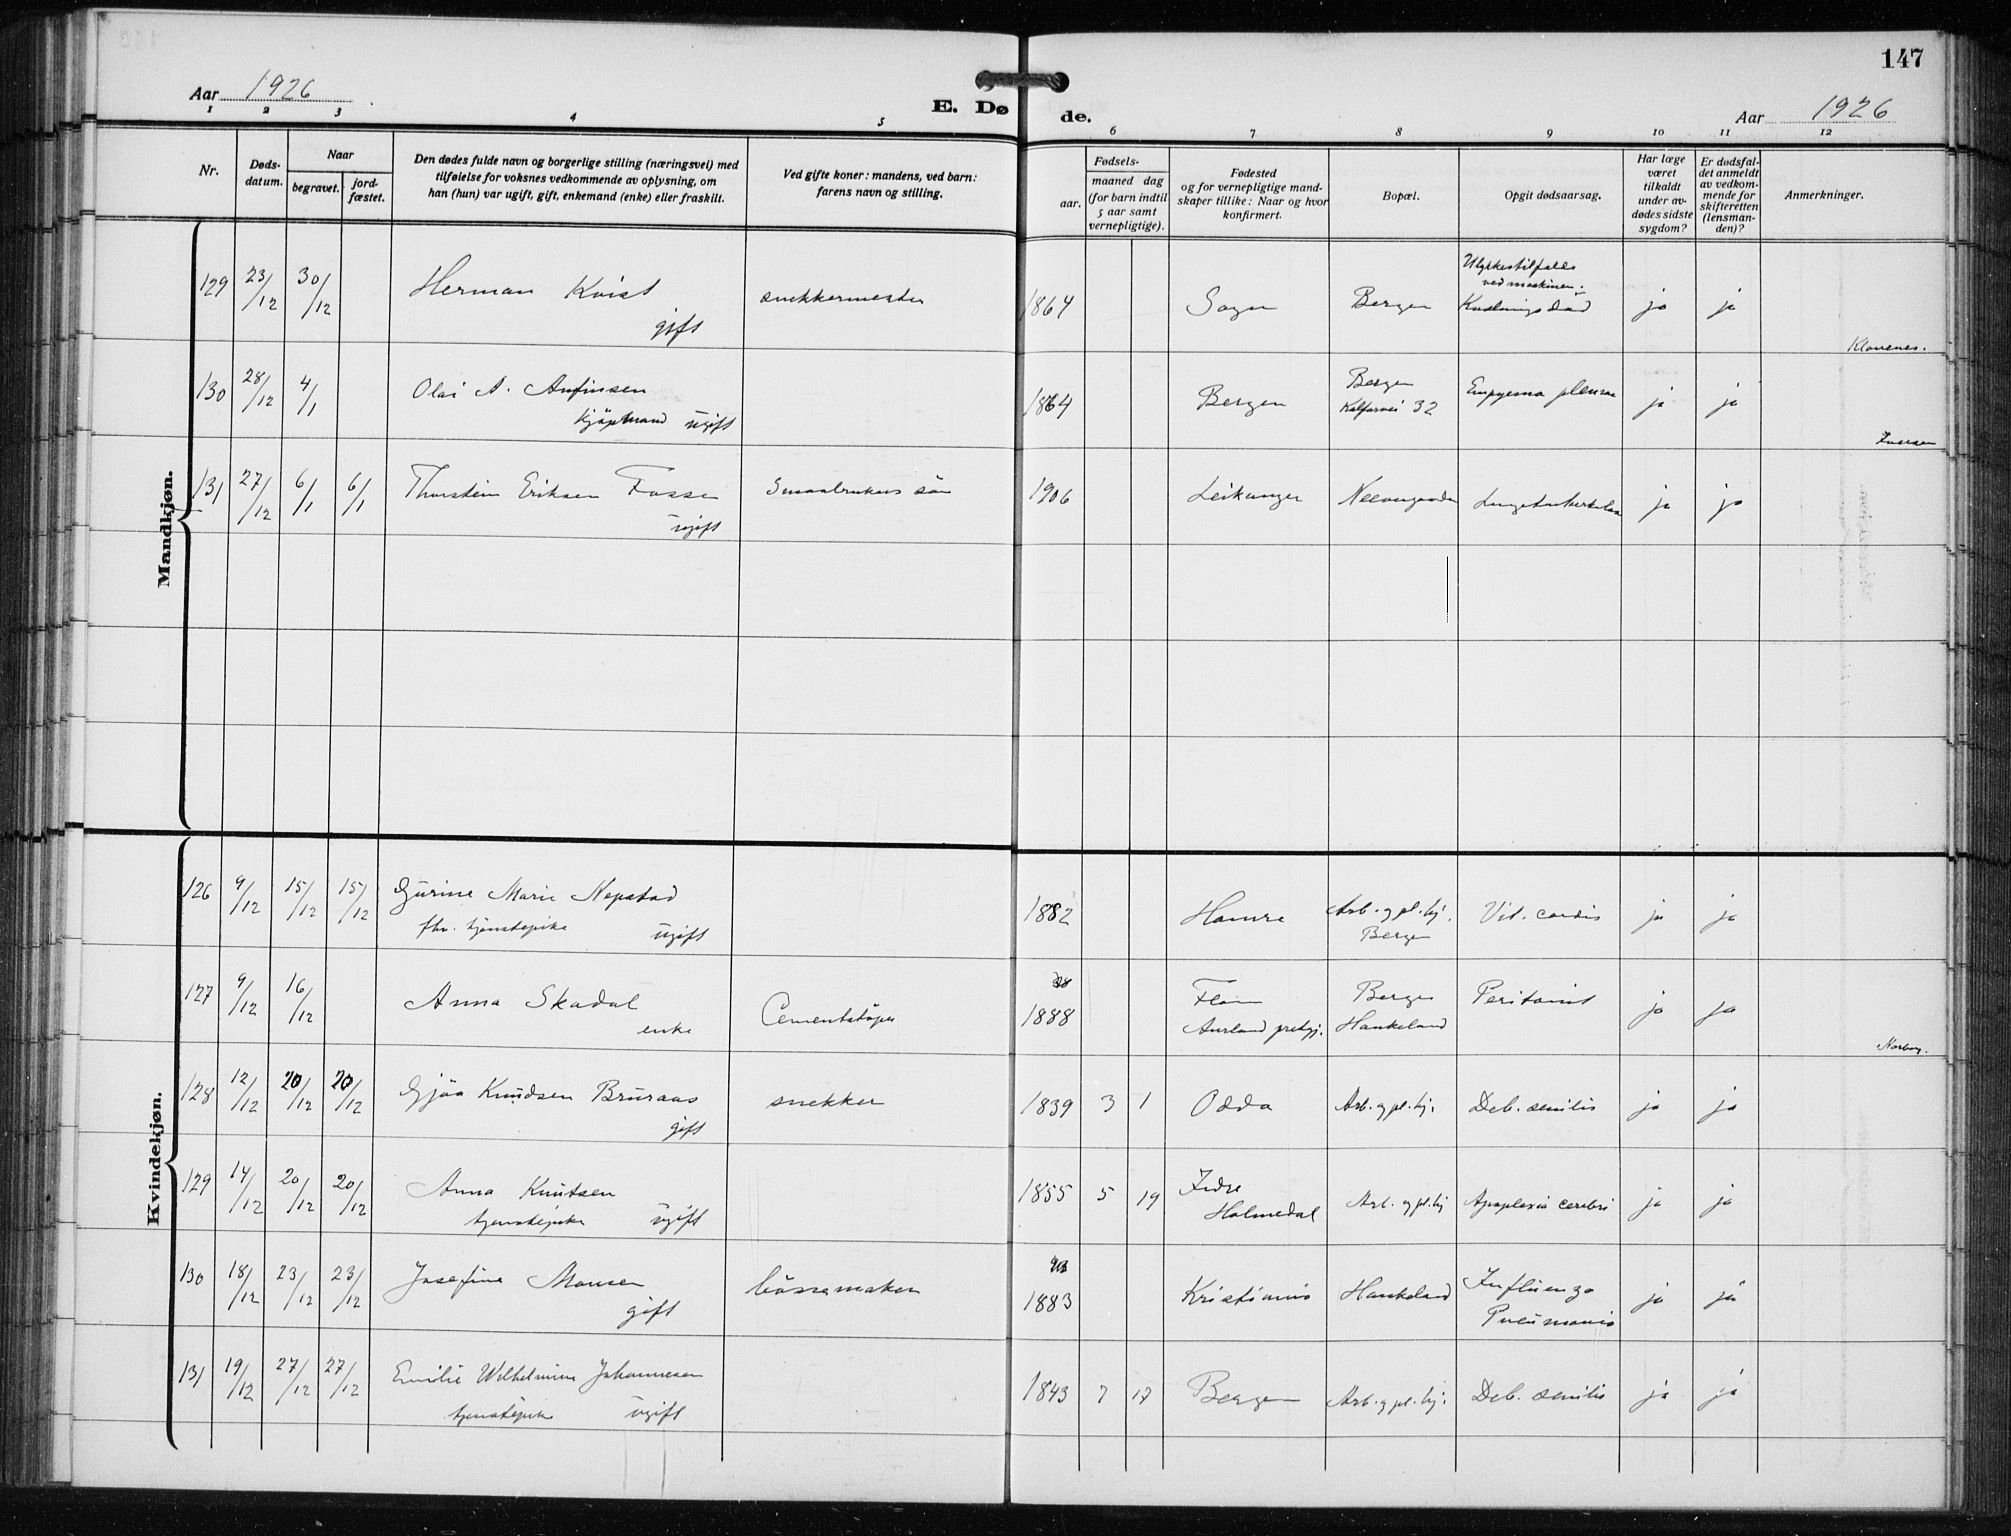 147
Aar 1926
E. Døde.
Aar 1926
1 2 3 4 5 6 7 8 9 10 11 12
Nr.
Døds-
datum.
Naar
begravet.
jord-
fæstet.
Den dødes fulde navn og borgerlige stilling (næringsvei) med
tilføielse for voksnes vedkommende av oplysning, om
han (hun) var ugift, gift, enkemand (enke) eller fraskilt.
Ved gifte koner: mandens, ved barn:
farens navn og stilling.
Fødsels-
aar.
maaned dag
(for barn indtil
5 aar samt
vernepligtige).
Fødested
og for vernepligtige mand-
skaper tillike: Naar og hvor
konfirmert.
Bopæl.
Opgit dødsaarsag.
Har læge
været
tilkaldt
under av-
dødes sidste
sygdom?
Er dødsfal-
det anmeldt
av vedkom-
mende for
skifteretten
(lensman-
den)?
Anmerkninger.
Mandkjøn.
129 23/12 30/12 Herman Kvist gift snekkermester 1864 Sogn Bergen Ulykkestilfælle ved maskinen. ja ja
Klovenes.
130 28/12 4/1 Olai A. Anfinsen kjøpmand ugift 1864 Bergen Bergen Kalfarvei 32 Empyema pleurae ja ja
Iversen
131 27/12 6/1 6/1 Thorstein Eriksen Fosse ugift Smaabrukers søn 1906 Leikanger Neevengaarden Lungetuberkulose ja ja
Kvindekjøn.
126 9/12 15/12 15/12 Gurine Marie Nepstad fhv. tjenstepike ugift 1882 Hamre Arb. og pl. hj. Bergen Vit. cordis ja ja
127 9/12 16/12 Anna Skadal enke Cementstøper 38 1888 Flaam Aurland prstgj. Bergen Haukeland Peritonit ja ja
128 12/12 20/12 20/12 Gjøa Knudsen Bruraas gift snekker 1839 3 1 Odda Arb. og pl. hj. Deb. senilis ja ja
129 14/12 20/12 20/12 Anna Knutsen tjenstepike ugift 1855 5 19 Indre Holmedal Arb. og pl. hj Apoplexia cerebri ja ja
130 18/12 23/12 23/12 Josefine Monsen gift bøssemaker 43 1883 Kristiania Haukeland Influenza Pneumonia ja ja
131 19/12 27/12 27/12 Emilie Wilhelmine Johannesen tjenstepike ugift 1843 7 17 Bergen Arb. og pl. hj. Deb. senilis ja ja